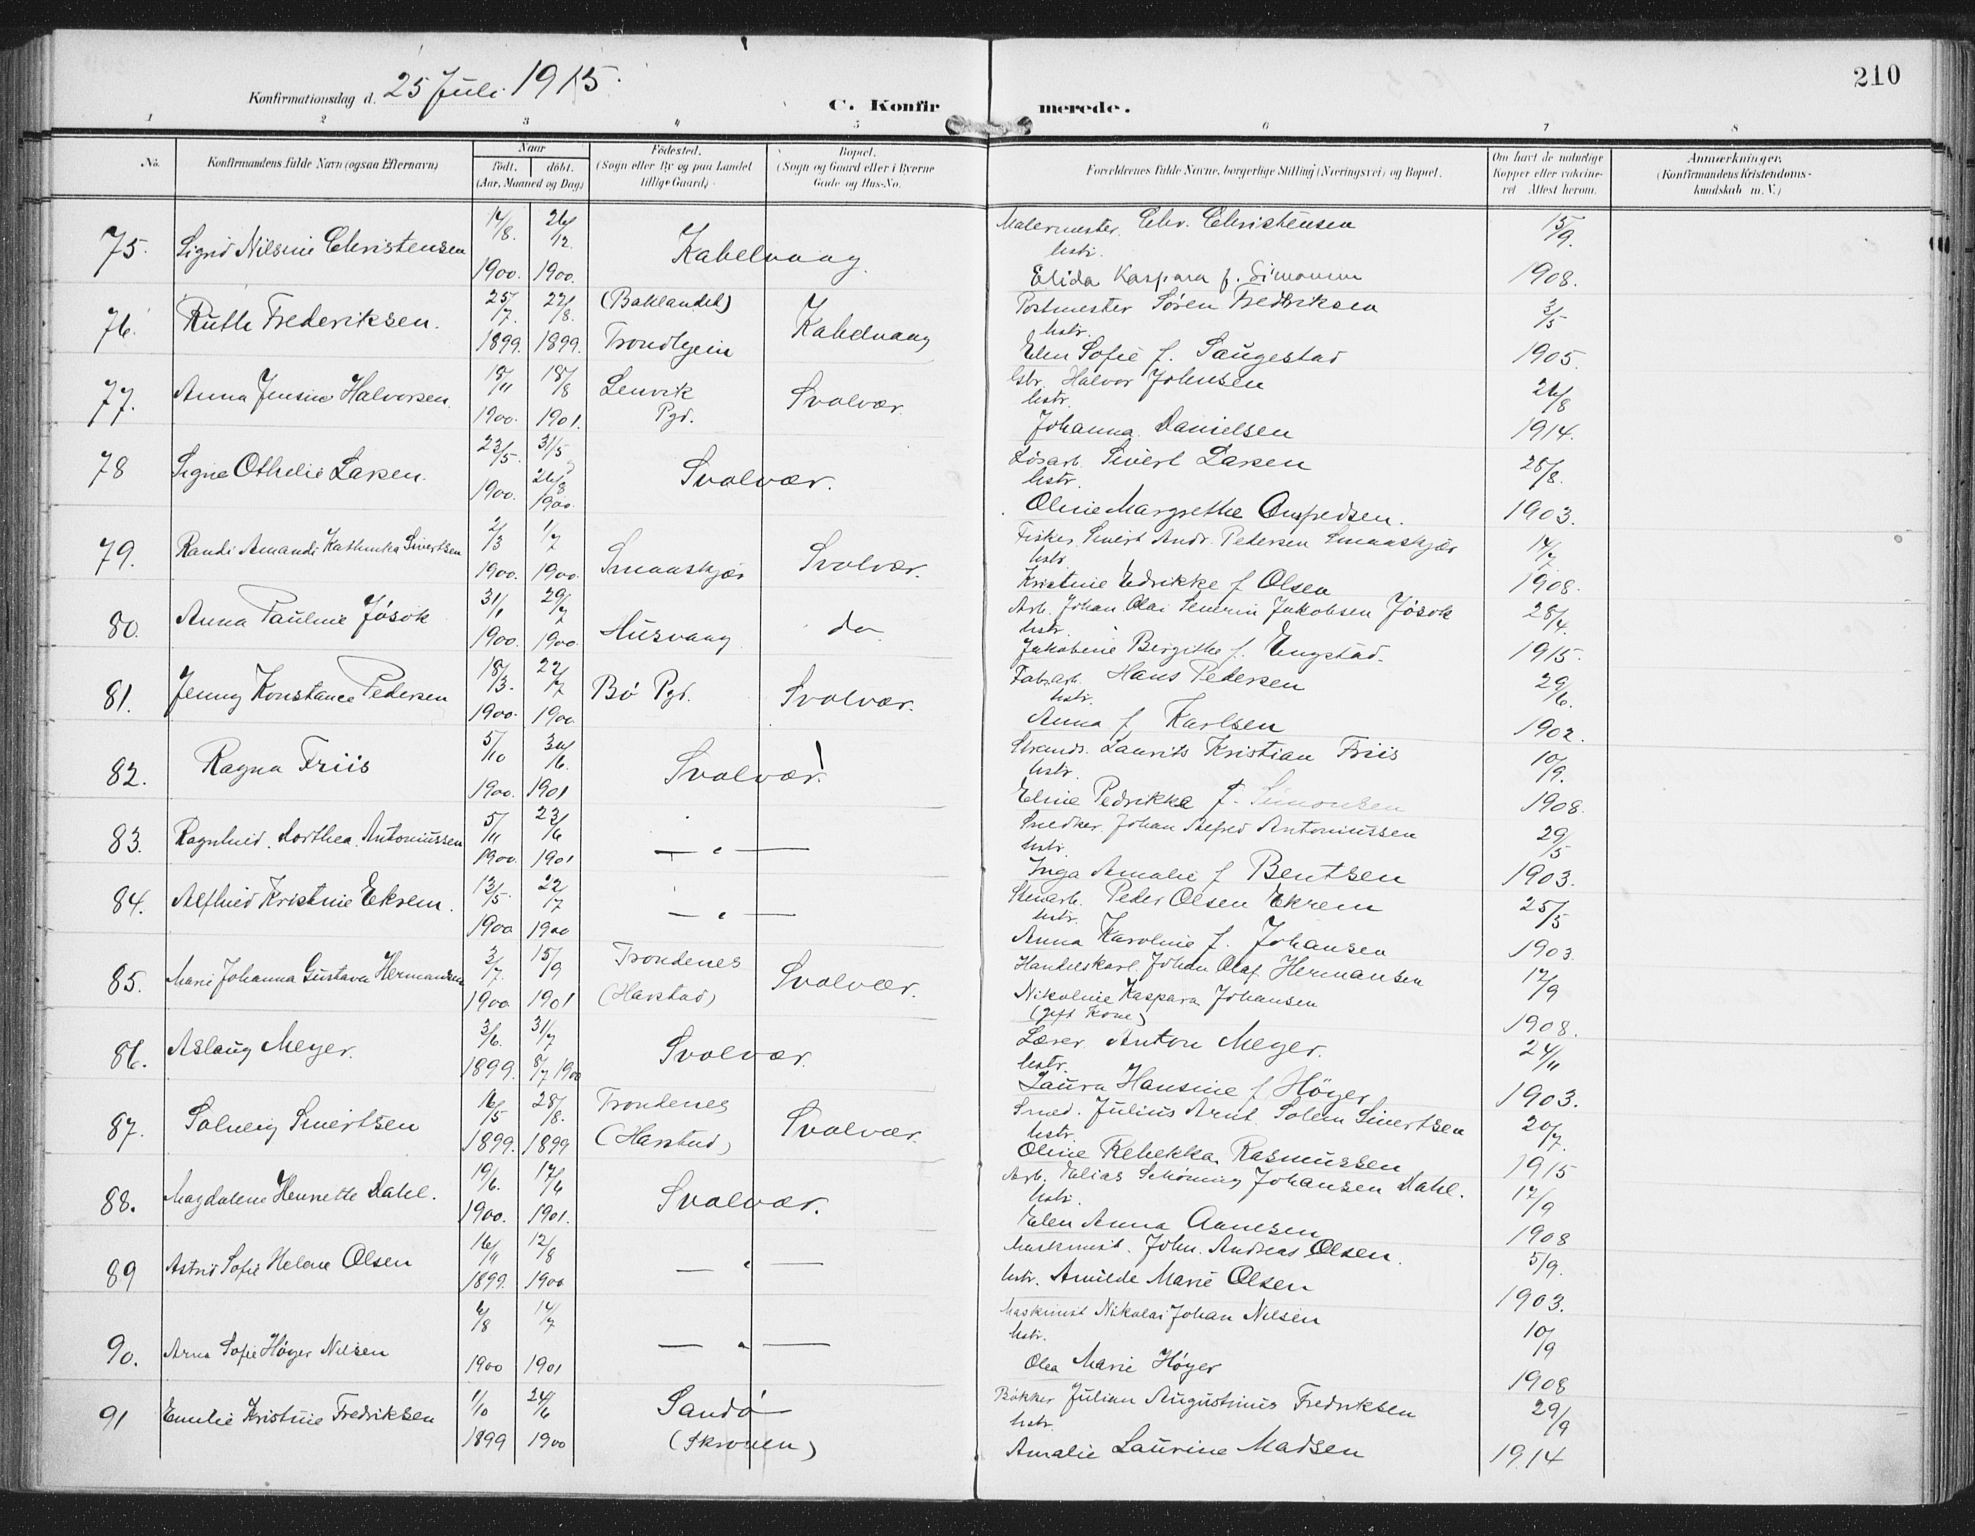 Konfirmationsdag d. 25 Juli 1915.
C. Konfirmerede.
210
1 2 3 4 5 6 7 8
No. Konfirmandens fulde Navn (ogsaa Efternavn) Naar født. døbt. (Aar, Maaned og Dag) Fødested. (Sogn eller By og paa Landet tillige Gaard). Bopæl. (Sogn og Gaard eller i Byerne Gade og Hus-No. Forældrenes fulde Navne, borgerlige Stilling (Næringsvei) og Bopæl. Om havt de naturlige Kopper eller vakcineret Attest herom. Anmærkninger. (Konfirmandens Kristendomskundskab m. V.)
75. Sigrid Nilsine Christensen 14/8. 1900. 26/12. 1900. Kabelvaag. Malermester Chr. Christensen 15/9.
hstr.
Elida Kaspara f. Simonsen 1908.
76. Ruth Frederiksen. 25/7. 1899. 27/8. 1899. (Baklandet) Trondhjem Kabelvaag Postmester Søren Fredriksen 3/5
hstr.
Elen Sofie f. Saugestad 1905.
77. Anna Jensine Halvorsen. 18/11 1900. 18/8 1901. Lenvik Pgd. Svolvær. Gbr. Halvor Johnsen 26/8
hstr.
Johanna Danielsen 1914.
78 Signe Othelie Larsen. 23/5. 1900. 31/5 26/8 1900. Svolvær. Løsarb. Sivert Larsen 28/8.
hstr.
Oline Margrethe 1903.
79. Randi Amandi Kathinka Sivertsen 2/3 1900. 1/7 1900. Smaaskjær Svolvær. Fisker Sivert Andr. Pedersen Smaaskjær 14/7
hstr.
Kristine Edrikke f Olsen 1908.
80. Anna Pauline Jøsok 31/1 1900. 29/7 1900. Husvaag do Arb. Johan Olai Severin Jakobsen Jøsok 28/4.
hstr.
Jakobine Bergithe f. Engstad. 1915.
81. Jenny Konstance Pedersen 18/3. 1900. 22/7 1900. Bø Pgd. Svolvær. Fabrarb. Hans Pedersen 29/6.
hstr.
Anna f Karlsen 1902.
82. Ragna Friis 5/10 1900. 30/6. 1901 Svolvær! Strands. Laurits Kristian Friis 10/9.
hstr.
Eline Pedrikke f. Simonsen 1908.
83. Ragnhild Dorthea Antoniussen 5/11 1900. 23/6 1901 — " — Snedker. Johan Alfred Antoniussen 29/5
hstr.
Inga Amalie f Bentsen 1903.
84. Alfhild Kristine Ekrem. 13/5. 1900 22/7 1900 — " — Stenarb. Peder Olsen Ekrem 25/5
hstr.
Anna Karoline f. Johansen 1903.
85. Marie Johanna Gustava Hermansen 3/7. 1900. 15/9 1901 Trondenes (Harstad) Svolvær. Handelskarl. Johan Olaf Hermansen 12/9
Nikoline Kaspara Johansen
(gift Kone) 1908.
86. Aslaug Meyer. 3/6. 1899. 31/7 8/7 1900 Svolvær. Lærer Anton Meyer. 24/11
hstr.
Laura Hansine f Höyer 1903.
87. Solveig Sivertsen 16/5 1899. 28/8. 1899 Trondenes (Harstad) Svolvær. Smed. Julius Arnt Solem Sivertsen 20/7.
hstr.
Oline Rebekka Rasmussen 1915
88. Magdalene Henriette Dahl. 19/6. 1900. 17/6 1901. Svolvær. Arb. Elias Schøning Johansen Dahl. 12/9
hstr.
Elen Anna Aanesen 1908
89 Astrid Sofie Helene Olsen 16/11 1899. 12/8 1900 — " — Maskinist. John. Andreas Olsen. 5/9.
hstr. Amilde Marie Olsen 1903.
90. Arna Sofie Høyer Nilsen 6/8 1900 14/7 1901 — " — Maskinist Nikolai Johan Nilsen 10/9
hstr.
Olea Marie Høyer 1908
91 Emilie Kristine Fredriksen 1/10 1899 24/6 1900 Sandö (Skroven) Bøkker Julian Augustinus Fredriksen 29/9
hstr.
Amalie Laurine Madsen 1914